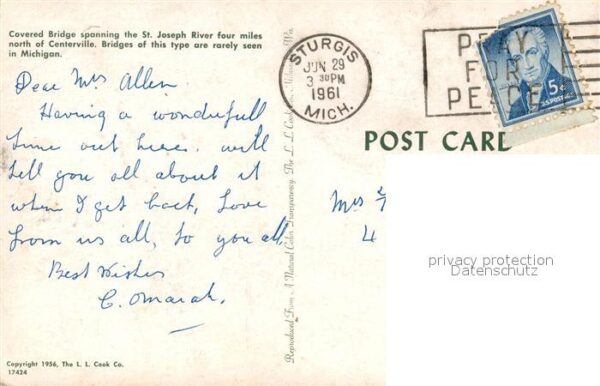 Covered Bridge spanning the St. Joseph River four miles
north of Centerville. Bridges of this type are rarely seen
in Michigan.
Dear Mrs Allen
Having a wonderfull
time out here. will
tell you all about it
when I get back, Love
from us all, to you all
Best Wishes
C. Omarah.
Copyright 1956, The L. L. Cook Co.
17424
Reproduced From A Natural Color Transparency. The L. L. Cook Co.
STURGIS
JUN 29
3 30PM
1961
MICH.
PRAY
FOR
PEACE
5¢
U.S. POSTAGE
POST CARD
Mrs
4
privacy protection
Datenschutz